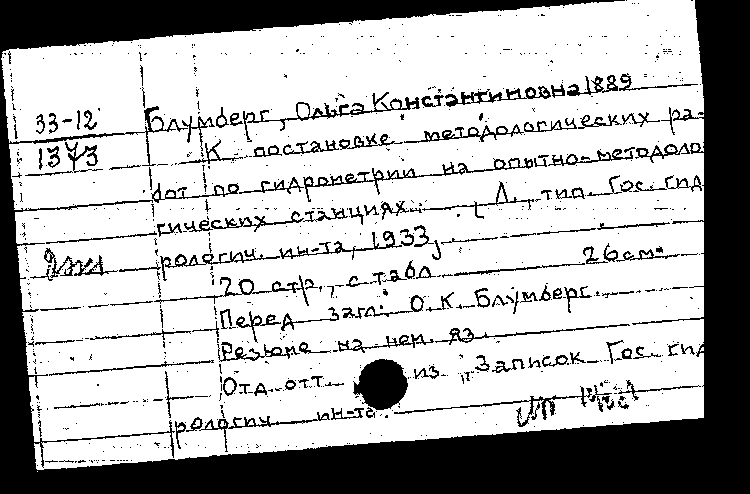 33-12
1373
Блумберг, Ольга Константиновна 1889
К постановке методологических ра-
бот по гидрометрии на опытно-методоло
гических станциях. [Л., тип. Гос. гид
рологич. ин-та, 1933].
20 стр., с табл. 26 см.
Перед загл: О.К. Блумберг.
Резюме на нем. яз.
Отд. отт. из "Записок Гос. гид
рологич. ин-та.